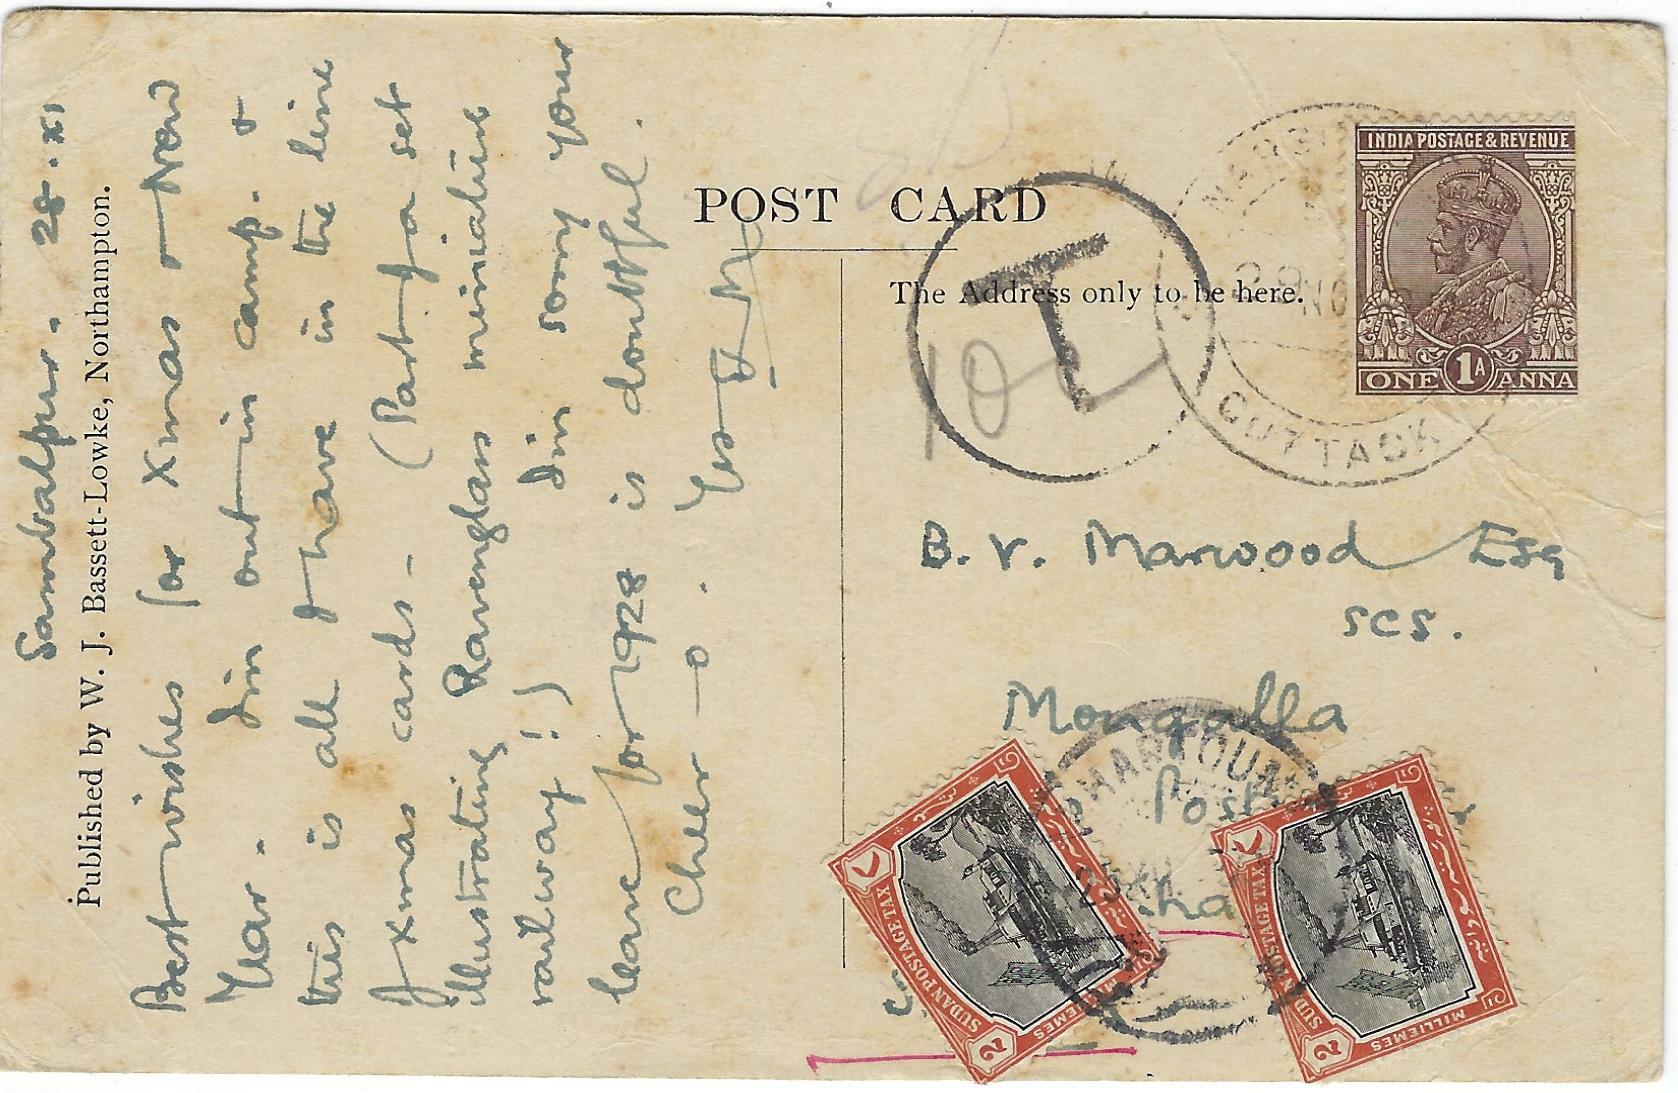 Sambalpur. 28.XI
Published by W. J. Bassett-Lowke, Northampton.
Best wishes for Xmas & New
Year. I'm out in camp. &
this is all I have in the line
of Xmas cards – (Part of a set
illustrating Ravenglass miniature
railway !!) I'm sorry your
leave for 1928 is doubtful.
Cheer-o. Yrs
POST CARD
The Address only to be here.
T
10c
INDIA POSTAGE & REVENUE
ONE 1A ANNA
CUTTACK
B. V. Marwood Esq
SCS.
Mongalla
Post
KHARTOUM
SUDAN POSTAGE TAX
2 MILLIEMES
SUDAN POSTAGE TAX
2 MILLIEMES